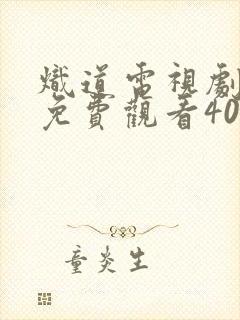 熾道電視劇
免費觀看40
童炎生